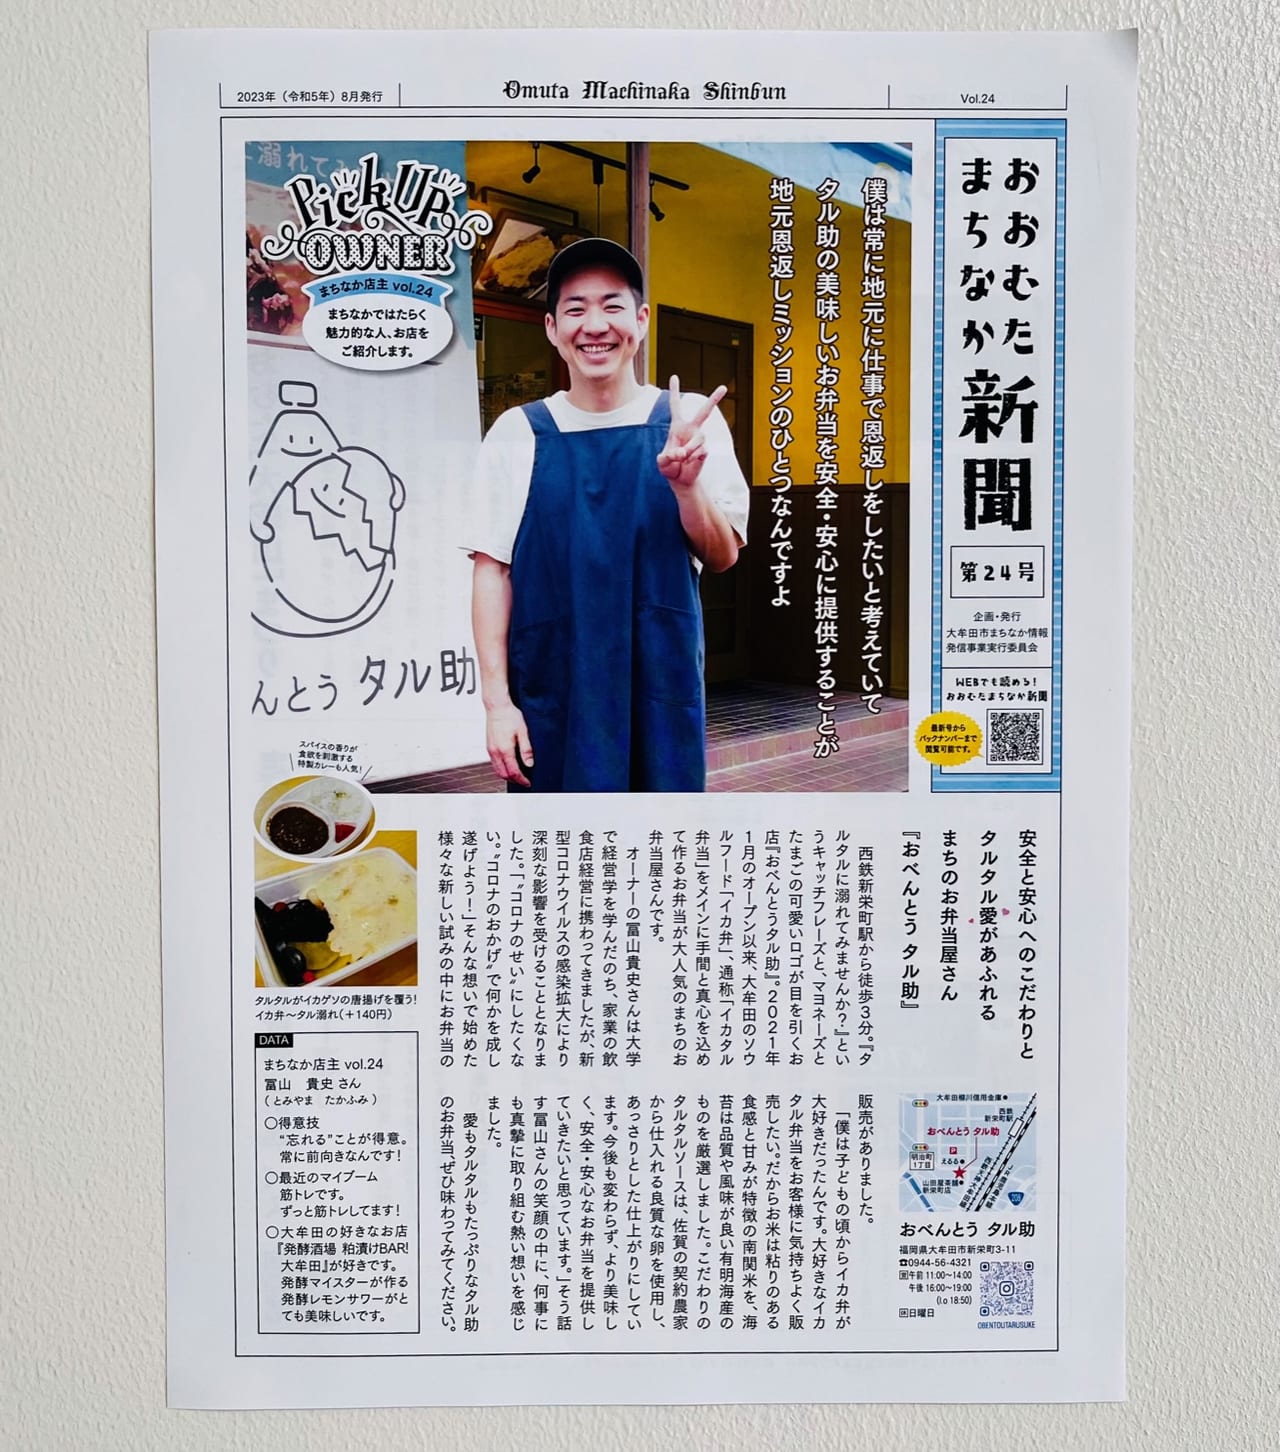 2023年（令和5年）8月発行
Omuta Machinaka Shinbun
Vol.24
おおむた
まちなか新聞
第24号
企画・発行
大牟田市まちなか情報
発信事業実行委員会
WEBでも読める！
おおむたまちなか新聞
最新号から
バックナンバーまで
閲覧可能です。
溺れてみ
Pick UP
OWNER
まちなか店主 vol.24
まちなかではたらく
魅力的な人、お店を
ご紹介します。
僕は常に地元に仕事で恩返しをしたいと考えていて
タル助の美味しいお弁当を安全・安心に提供することが
地元恩返しミッションのひとつなんですよ
んとう タル助
スパイスの香りが
食欲を刺激する
特製カレーも人気！
タルタルがイカゲソの唐揚げを覆う！
イカ弁〜タル溺れ（＋140円）
安全と安心へのこだわりと
タルタル愛があふれる
まちのお弁当屋さん
『おべんとう タル助』
西鉄新栄町駅から徒歩３分。『タ
ルタルに溺れてみませんか？』とい
うキャッチフレーズと、マヨネーズと
たまごの可愛いロゴが目を引くお
店『おべんとうタル助』。２０２１年
１月のオープン以来、大牟田のソウ
ルフード「イカ弁」、通称「イカタル
弁当」をメインに手間と真心を込め
て作るお弁当が大人気のまちのお
弁当屋さんです。
オーナーの冨山貴史さんは大学
で経営学を学んだのち、家業の飲
食店経営に携わってきましたが、新
型コロナウイルスの感染拡大により
深刻な影響を受けることとなりま
した。「〝コロナのせい〟にしたくな
い。〝コロナのおかげ〟で何かを成し
遂げよう！」そんな想いで始めた
様々な新しい試みの中にお弁当の
販売がありました。
「僕は子どもの頃からイカ弁が
大好きだったんです。大好きなイカ
タル弁当をお客様に気持ちよく販
売したい。だからお米は粘りのある
食感と甘みが特徴の南関米を、海
苔は品質や風味が良い有明海産の
ものを厳選しました。こだわりの
タルタルソースは、佐賀の契約農家
から仕入れる良質な卵を使用し、
あっさりとした仕上がりにしてい
ます。今後も変わらず、より美味し
く、安全・安心なお弁当を提供し
ていきたいと思っています。」そう話
す冨山さんの笑顔の中に、何事に
も真摯に取り組む熱い想いを感じ
ました。
愛もタルタルもたっぷりなタル助
のお弁当、ぜひ味わってみてください。
DATA
まちなか店主 vol.24
冨山　貴史 さん
（とみやま　たかふみ）
○得意技
“忘れる”ことが得意。
常に前向きなんです！
○最近のマイブーム
筋トレです。
ずっと筋トレしてます！
○大牟田の好きなお店
『発酵酒場 粕漬けBAR!
大牟田』が好きです。
発酵マイスターが作る
発酵レモンサワーがと
ても美味しいです。
大牟田柳川信用金庫
西鉄
新栄町駅
おべんとう タル助
P
明治町
1丁目
えるる
山田屋茶舗
新栄町店
208
おべんとう タル助
福岡県大牟田市新栄町3-11
☎0944-56-4321
営午前 11:00〜14:00
午後 16:00〜19:00
（l.o 18:50）
休日曜日
OBENTOUTARUSUKE